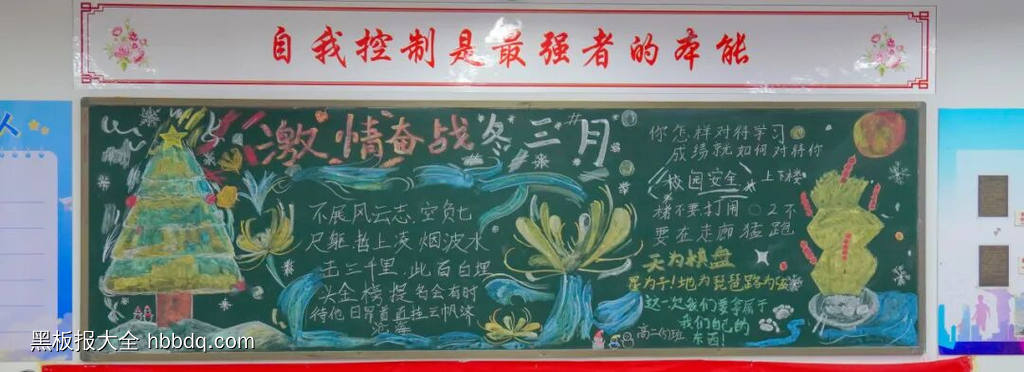 自我控制是最强者的本能
激情奋战冬三月
不展风云志,空负七
尺躯 哲上凌烟波水
击三千里,此百白埋
头金榜提名会有时
待他日
直挂云帆济
沧海
你怎样对待学习
成绩就如何对待你
校园安全
上下楼
梯不要打闹 2不
要在走廊猛跑
天为棋盘
星为子!地为琵琶路为弦
这一次我们要拿属于
我们自己的
东西!
高二(5)班
人
黑板报大全 hbbdq.com